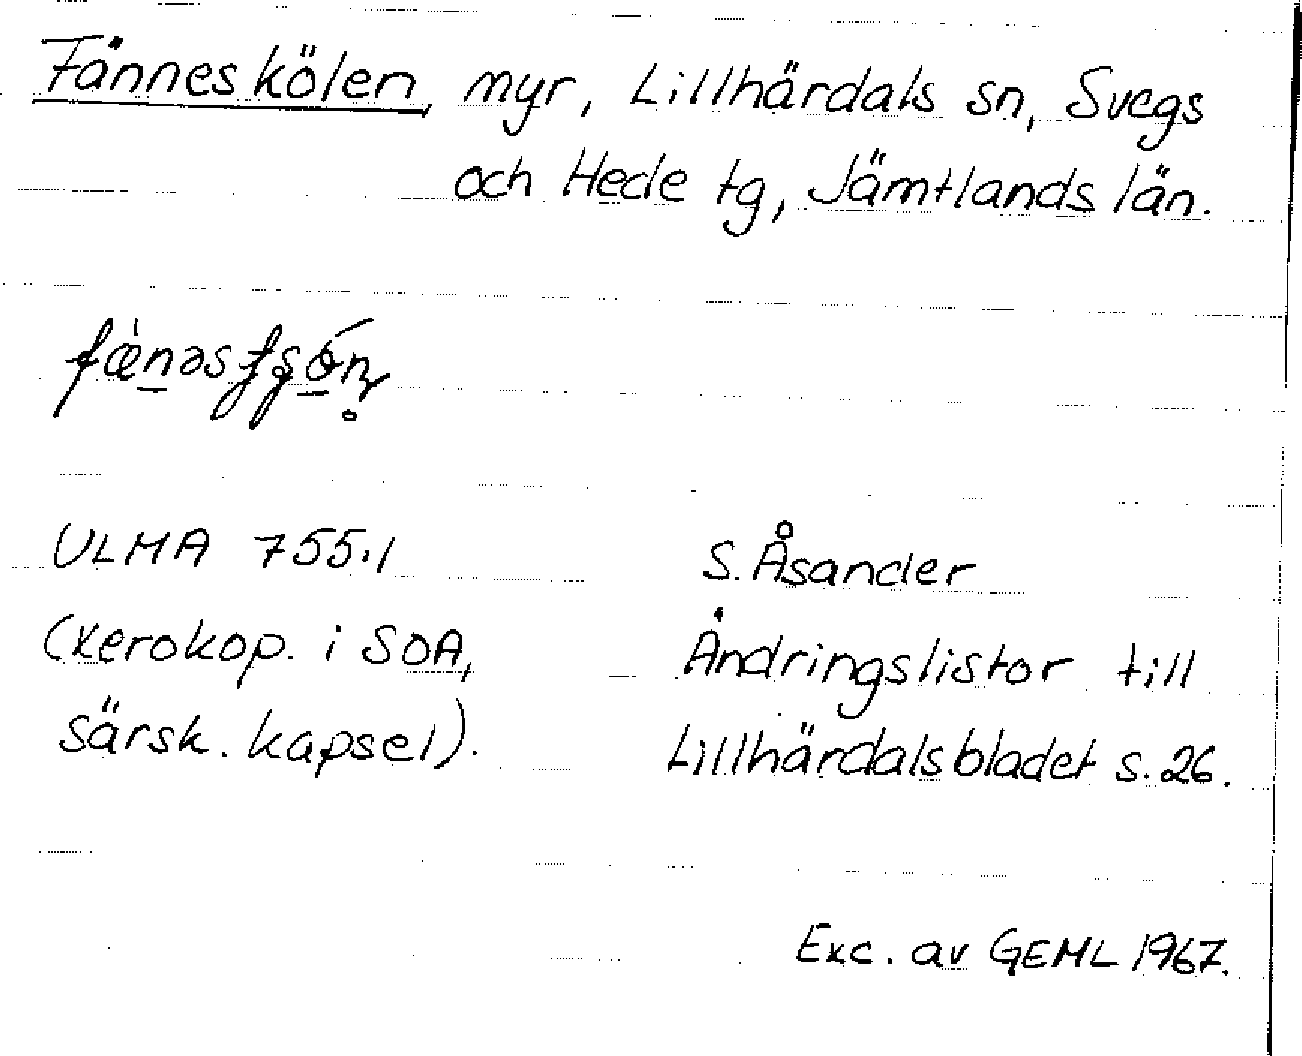 Fänneskölen, myr, Lillhärdals sn, Svegs
och Hede tg, Jämtlands län.
ULMA 755:1
S. Åsander
(xerokop. i SOA,
Ändringslistor till
särsk. kapsel).
Lillhärdalsbladet s. 26.
Exc. av GEML 1967.